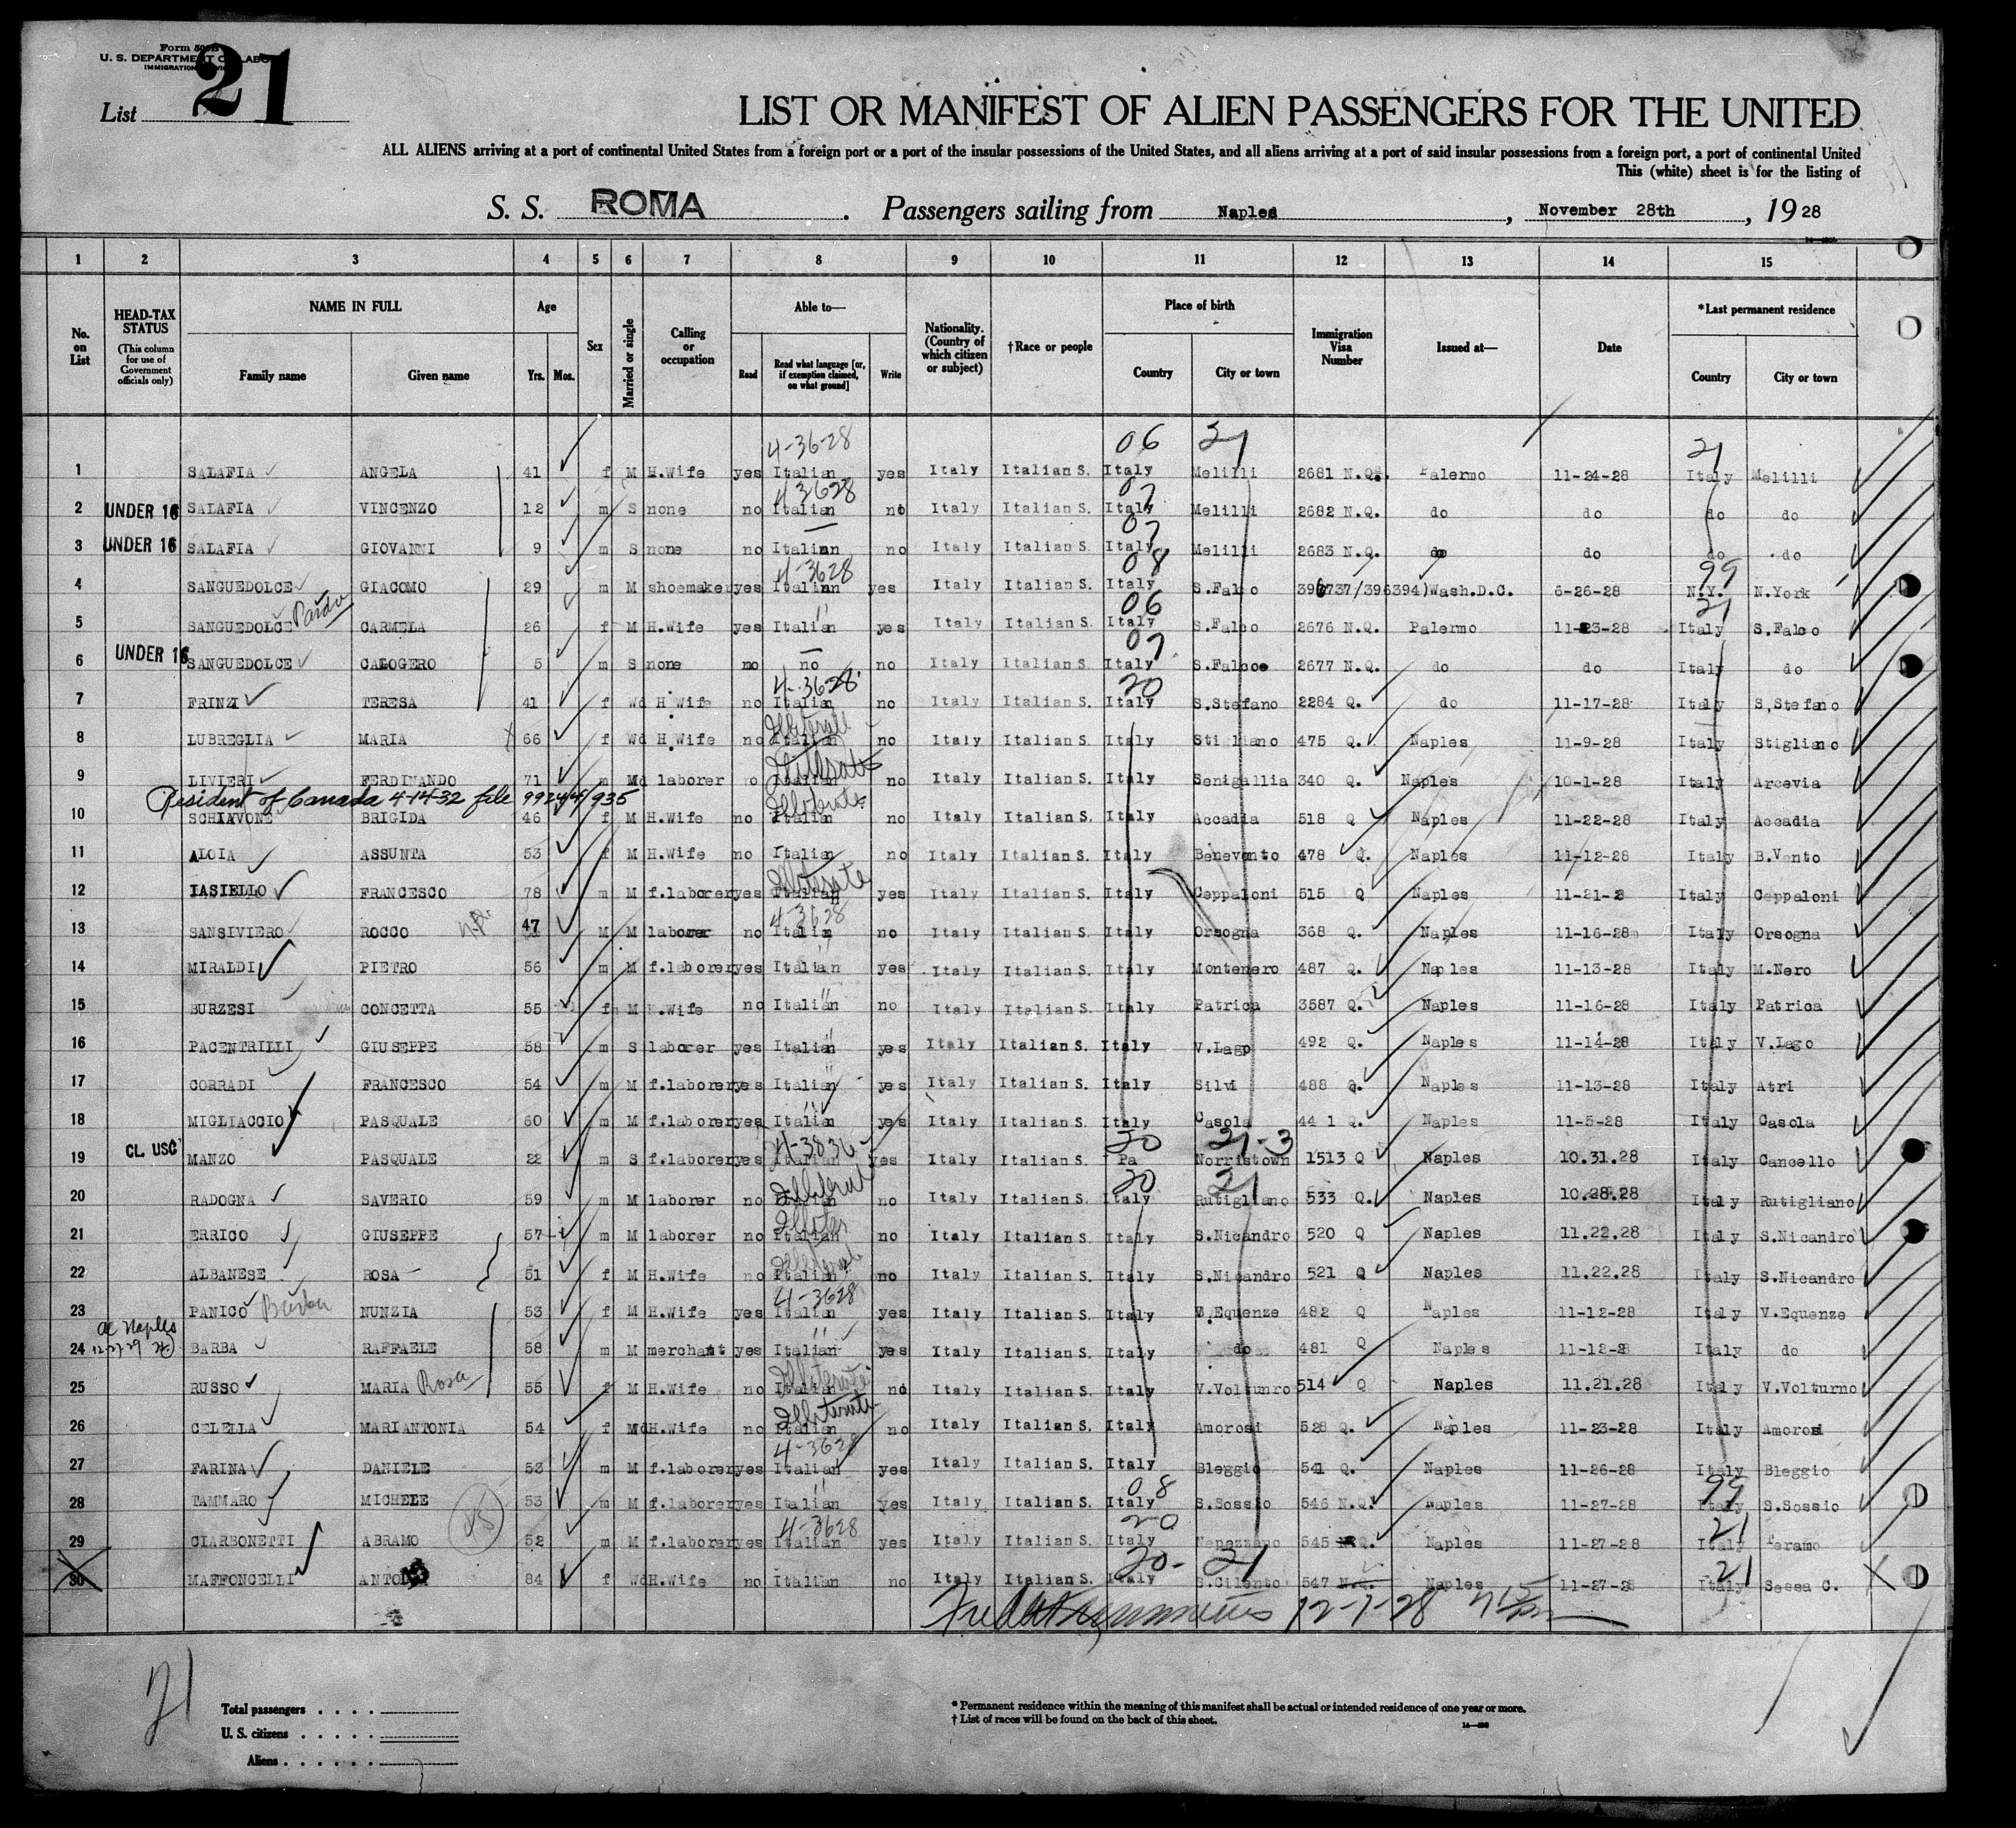 Form 500B
U. S. DEPARTMENT OF LABOR
IMMIGRATION SERVICE
List 21
LIST OR MANIFEST OF ALIEN PASSENGERS FOR THE UNITED
ALL ALIENS arriving at a port of continental United States from a foreign port or a port of the insular possessions of the United States, and all aliens arriving at a port of said insular possessions from a foreign port, a port of continental United
This (white) sheet is for the listing of
S. S. ROMA. Passengers sailing from Naples, November 28th, 1928
1 2 3 4 5 6 7 8 9 10 11 12 13 14 15
No. on List
HEAD-TAX STATUS (This column for use of Government officials only)
NAME IN FULL Family name Given name
Age Yrs. Mos.
Sex
Married or single
Calling or occupation
Able to— Read Read what language [or, if exemption claimed, on what ground] Write
Nationality. (Country of which citizen or subject)
†Race or people
Place of birth Country City or town
Immigration Visa Number
Issued at—
Date
*Last permanent residence Country City or town
4-36-28 06 21 21
1 SALAFIA ANGELA 41 f M H.Wife yes Italian yes Italy Italian S. Italy Melilli 2681 N.Q. Palermo 11-24-28 Italy Melilli
4 3628 07
2 UNDER 16 SALAFIA VINCENZO 12 m S none no Italian no Italy Italian S. Italy Melilli 2682 N.Q. do do do do
— 07
3 UNDER 16 SALAFIA GIOVANNI 9 m S none no Italian no Italy Italian S. Italy Melilli 2683 N.Q. do do do do
4-3628 08 99
4 SANGUEDOLCE GIACOMO 29 m M shoemaker yes Italian yes Italy Italian S. Italy S.Falco 396737/396394)Wash.D.C. 6-26-28 N.Y. N.York
Pardo " 06 21
5 SANGUEDOLCE CARMELA 26 f M H.Wife yes Italian yes Italy Italian S. Italy S.Falco 2676 N.Q. Palermo 11-23-28 Italy S.Falco
— 07
6 UNDER 16 SANGUEDOLCE CALOGERO 5 m S none no no no Italy Italian S. Italy S.Falcoe 2677 N.Q. do do Italy do
4-3628 20
7 FRINZI TERESA 41 f Wd H Wife no Italian no Italy Italian S. Italy S.Stefano 2284 Q. do 11-17-28 Italy S.Stefano
Illiterate
8 LUBREGLIA MARIA 66 f Wd H Wife no Italian no Italy Italian S. Italy Stigliano 475 Q. Naples 11-9-28 Italy Stigliano
Illiterate
9 LIVIERI FERDINANDO 71 m Md laborer no Italian no Italy Italian S. Italy Senigallia 340 Q. Naples 10-1-28 Italy Arcevia
Resident of Canada 4-14-32 file 9924/4/935 Illiterate
10 SCHIAVONE BRIGIDA 46 f M H.Wife no Italian no Italy Italian S. Italy Accadia 518 Q Naples 11-22-28 Italy Accadia
11 ALOIA ASSUNTA 53 f M H.Wife no Italian no Italy Italian S. Italy Benevento 478 Q. Naples 11-12-28 Italy B.Vento
Illiterate
12 IASIELLO FRANCESCO 78 m M f.laborer yes Italian yes Italy Italian S. Italy Ceppaloni 515 Q Naples 11-21-2 Italy Ceppaloni
4-3628
13 SANSIVIERO ROCCO 47 M M laborer no Italian no Italy Italian S. Italy Orsogna 368 Q. Naples 11-16-28 Italy Orsogna
14 MIRALDI PIETRO 56 m M f.laborer yes Italian yes Italy Italian S. Italy Montenero 487 Q. Naples 11-13-28 Italy M.Nero
"
15 BURZESI CONCETTA 55 f M H.Wife no Italian no Italy Italian S. Italy Patrica 3587 Q. Naples 11-16-28 Italy Patrica
"
16 PACENTRILLI GIUSEPPE 58 m S laborer yes Italian yes Italy Italian S. Italy V.Lago 492 Q. Naples 11-14-28 Italy V.Lago
"
17 CORRADI FRANCESCO 54 m M f.laborer yes Italian yes Italy Italian S. Italy Silvi 488 Q. Naples 11-13-28 Italy Atri
"
18 MIGLIACCIO PASQUALE 60 m M f.laborer yes Italian yes Italy Italian S. Italy Casola 44 1 Q. Naples 11-5-28 Italy Casola
4-3836 20 21-3
19 CL. USC MANZO PASQUALE 22 m S f.laborer yes Italian yes Italy Italian S. Pa Norristown 1513 Q Naples 10.31.28 Italy Cancello
Illiterate 20 21
20 RADOGNA SAVERIO 59 m M laborer no Italian no Italy Italian S. Italy Rutigliano 533 Q. Naples 10.28.28 Italy Rutigliano
21 ERRICO GIUSEPPE 57 m M laborer no Italian no Italy Italian S. Italy S.Nicandro 520 Q Naples 11.22.28 Italy S.Nicandro
Illiterate
22 ALBANESE ROSA 51 f M H.Wife no Italian no Italy Italian S. Italy S.Nicandro 521 Q Naples 11.22.28 Italy S.Nicandro
4-3628
23 PANICO Barba NUNZIA 53 f M H.Wife yes Italian yes Italy Italian S. Italy V.Equenze 482 Q Naples 11-12-28 Italy V.Equenze
Naples "
24 12-27-29 BARBA RAFFAELE 58 m M merchant yes Italian yes Italy Italian S. Italy do 481 Q Naples 11-12-28 Italy do
Illiterate
25 RUSSO MARIA Rosa 55 f M H.Wife no Italian no Italy Italian S. Italy V.Voltunro 514 Q Naples 11.21.28 Italy V.Volturno
Illiterate
26 CELELLA MARIANTONIA 54 f Md H.Wife no Italian no Italy Italian S. Italy Amorosi 528 Q. Naples 11-23-28 Italy Amorosi
4-3628
27 FARINA DANIELE 53 m M f.laborer yes Italian yes Italy Italian S. Italy Bleggio 541 Q. Naples 11-26-28 Italy Bleggio
" 08 99
28 TAMMARO MICHELE 53 m M f.laborer yes Italian yes Italy Italian S. Italy S.Sossio 546 N.Q. Naples 11-27-28 Italy S.Sossio
4-3628 20 21
29 CIARBONETTI ABRAMO 52 m M f.laborer yes Italian yes Italy Italian S. Italy Nepezzano 545 N.Q. Naples 11-27-28 Italy Teramo
20- 21 21
30 MAFFONCELLI 84 f Wd H.Wife no Italian no Italy Italian S. Italy S.Cilento 547 N.Q. Naples 11-27-28 Italy Sessa C.
12-7-28
21
Total passengers
U. S. citizens
Aliens
* Permanent residence within the meaning of this manifest shall be actual or intended residence of one year or more.
† List of races will be found on the back of this sheet.